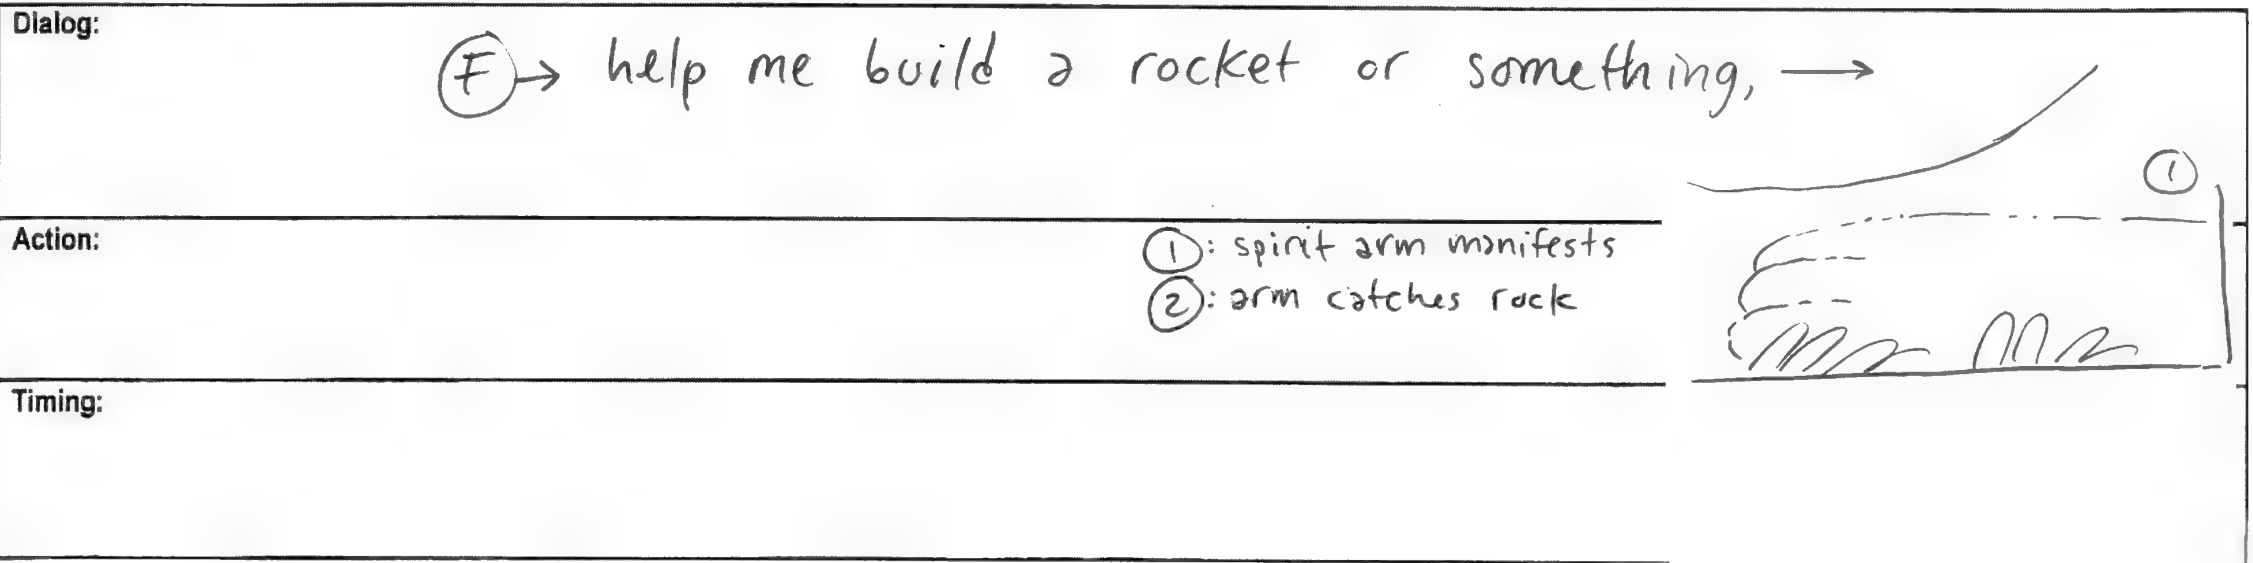 Dialog:
(F)→ help me build a rocket or something, →
①
Action:
①: spirit arm manifests
②: arm catches rock
Timing: